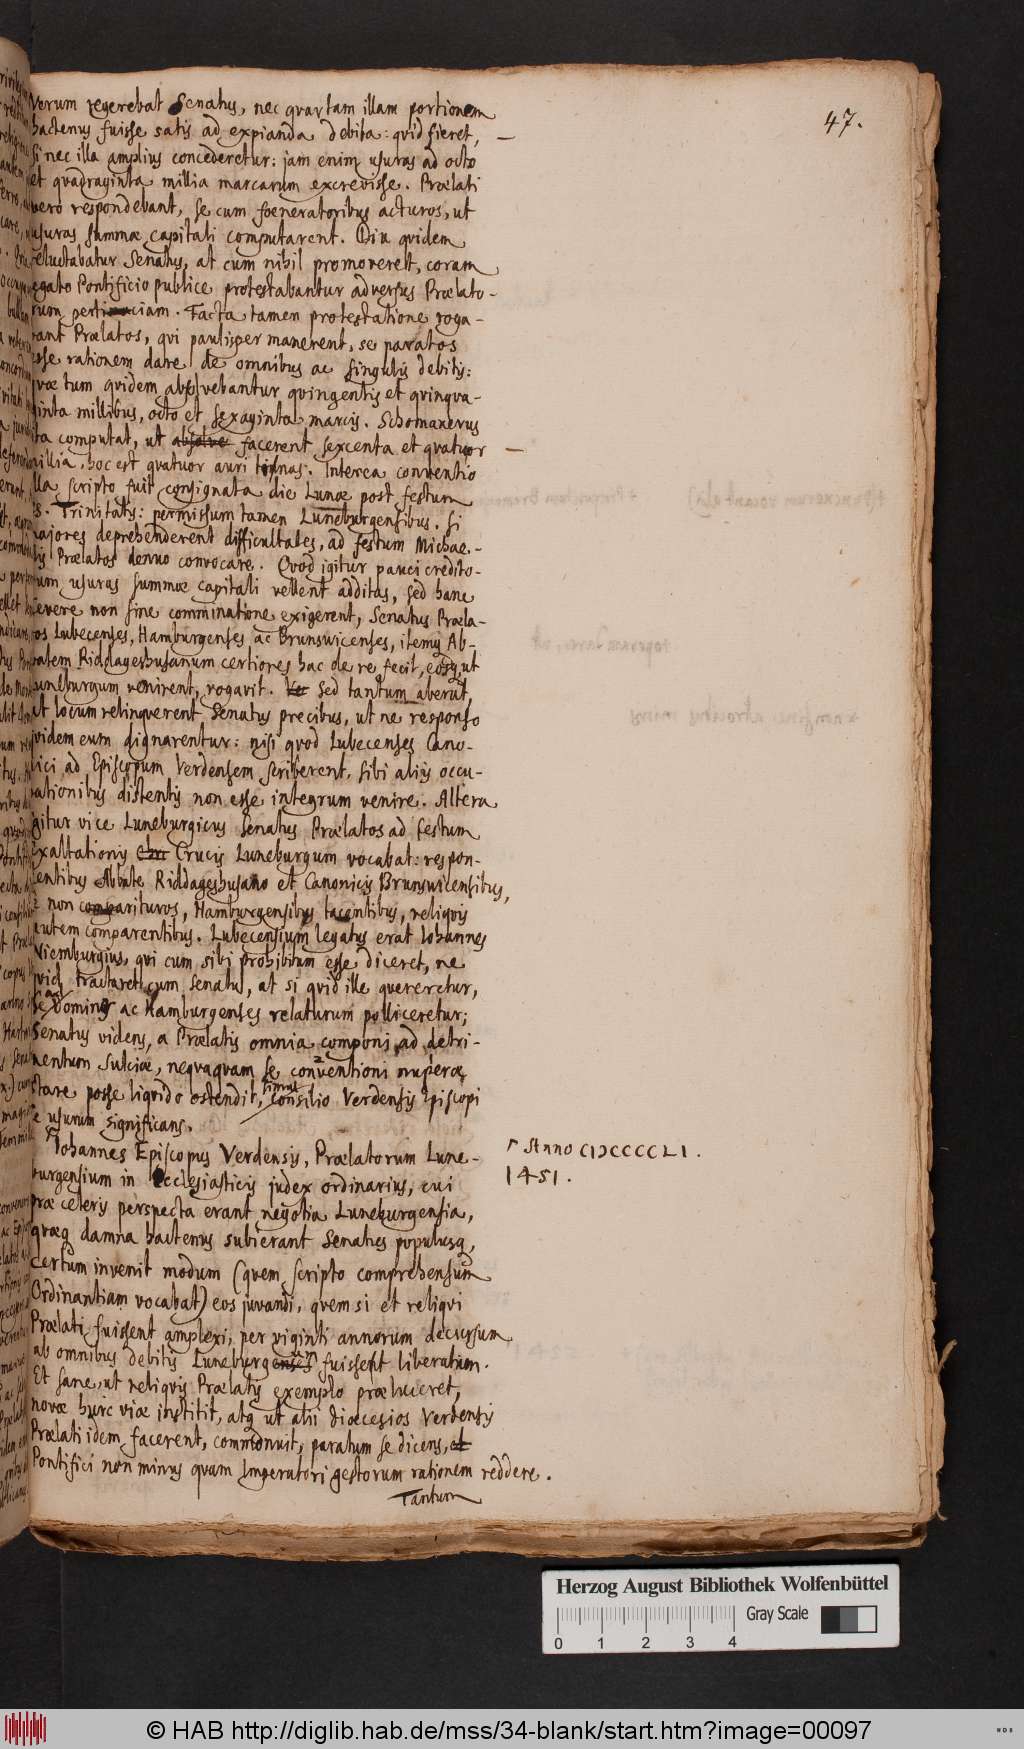 47.
Verum regerebat Senatus, nec quartam illam portionem
hactenus fuisse satis ad expianda debita: quid fieret,
si nec illa amplius concederetur: jam enim usuras ad octo
et quadraginta millia marcarum excrevisse. Prælati
vero respondebant, se cum fœneratoribus acturos, ut
usuras summæ capitali computarent. Diu quidem
reluctabatur Senatus, at cum nihil promoveret, coram
Legato Pontificio publice protestabantur adversus Prælato-
rum pertinaciam. Facta tamen protestatione roga-
rant Prælatos, qui paulisper manerent, se paratos
esse rationem dare de omnibus ac singulis debitis:
quæ tum quidem absolvebantur quingentis et quinqua-
ginta millibus, octo et sexaginta marcis. Schomakerus
ita computat, ut absolve facerent sexcenta et quatuor
millia, hoc est quatuor auri tonnas. Interea conventio
illa scripto fuit consignata die Lunæ post festum
S. Trinitatis: permissum tamen Luneburgensibus, si
majores deprehenderent difficultates, ad festum Michae-
lis Prælatos denuo convocare. Quod igitur pauci credito-
rum usuras summæ capitali vellent additas, sed hanc
severe non sine comminatione exigerent, Senatus Præla-
tos Lubecenses, Hamburgenses ac Brunswicenses, itemq Ab-
batem Riddageshusanum certiores hac de re fecit, eosq, ut
Luneburgum venirent, rogavit. Sed tantum aberat,
ut locum relinqverent Senatus precibus, ut ne responso
quidem eum dignarentur: nisi quod Lubecenses Cano-
nici ad Episcopum Verdensem scriberent, sibi aliis occu-
pationibus distentis non esse integrum venire. Altera
igitur vice Luneburgicus Senatus Prælatos ad festum
Exaltationis Crucis Luneburgum vocabat: respon-
dentibus Abbate Riddageshusano et Canonicis Brunswicensibus,
se non comparituros, Hamburgensibus tacentibus, reliquis
autem comparentibus. Lubecensium legatus erat Iohannes
Niemburgius, qui cum sibi prohibitum esse diceret, ne
quid tractaret cum Senatu, at si quid ille quereretur,
se ad Dominos ac Hamburgenses relaturum polliceretur;
Senatus videns, a Prælatis omnia componi ad detri-
mentum Sulciæ, nequaquam se conventioni nuperæ
stare posse liquido ostendit, simul consilio Verdensis Episcopi
se usurum significans.
Iohannes Episcopus Verdensis, Prælatorum Lune-
burgensium in Ecclesiasticis judex ordinarius, cui
præ ceteris perspecta erant negotia Luneburgensia,
quæq damna hactenus subierant Senatus populusq,
certum invenit modum (quem scripto comprehensum
Ordinantiam vocabat) eos juvandi, quem si et reliqui
Prælati fuissent amplexi, per viginti annorum decursum
ab omnibus debitis Luneburgenses fuissent liberatum.
Et sane, ut reliquis Prælatis exemplo præluceret,
novæ huic viæ institit, atq ut alii diœcesios Verdensis
Prælati idem facerent, commonuit, paratum se dicens, et
Pontifici non minus quam Imperatori gestorum rationem reddere.
Tantum
Γ Anno CIƆCCCCLI.
1451.
Herzog August Bibliothek Wolfenbüttel
Gray Scale
0 1 2 3 4
© HAB http://diglib.hab.de/mss/34-blank/start.htm?image=00097